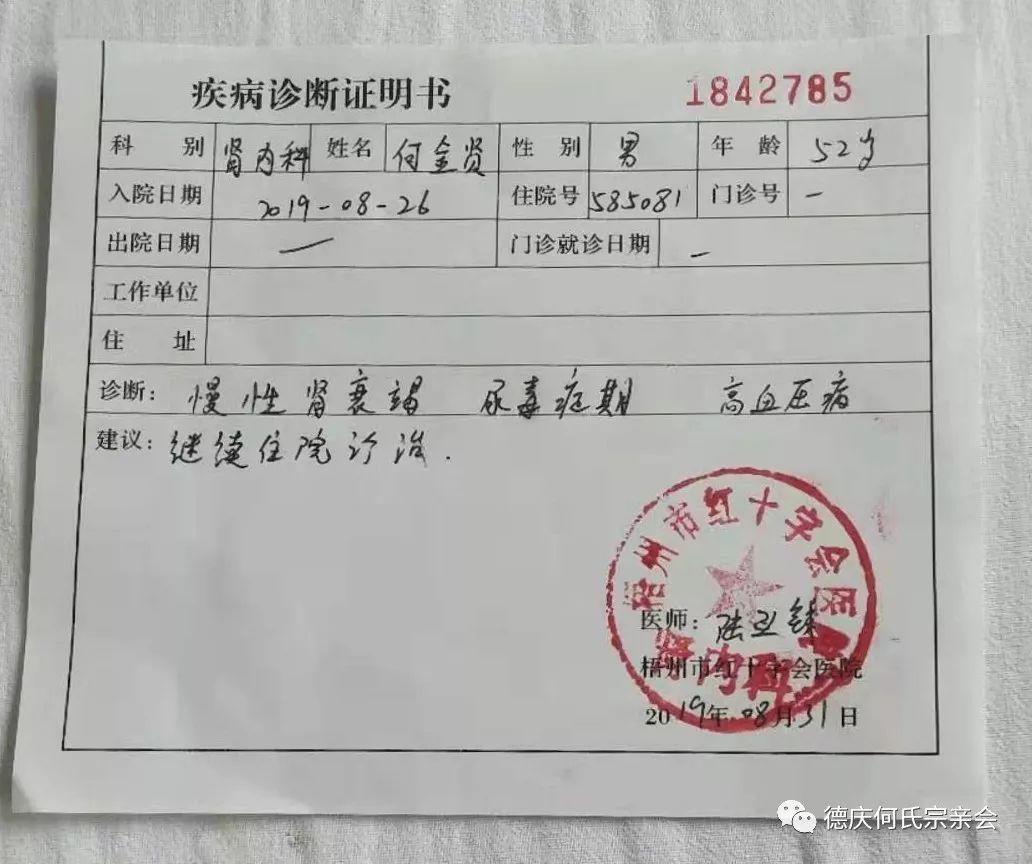 疾病诊断证明书 1842785
科别 肾内科 姓名 何金贤 性别 男 年龄 52岁
入院日期 2019-08-26 住院号 585081 门诊号 —
出院日期 — 门诊就诊日期 —
工作单位
住址
诊断: 慢性肾衰竭 尿毒症期 高血压病
建议: 继续住院诊治.
梧州市红十字会医院
肾内科
医师:
梧州市红十字会医院
2019年08月31日
德庆何氏宗亲会